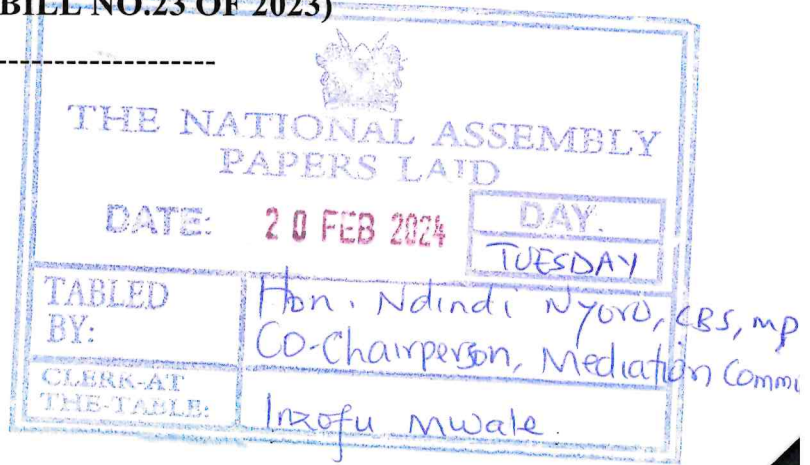 BILL NO.23 OF 2023)
THE NATIONAL ASSEMBLY
PAPERS LAID
DATE: 20 FEB 2024
DAY.
TUESDAY
TABLED BY:
Hon. Ndindi Nyoro, CBS, MP
CO-Chairperson, Mediation Commi
CLERK-AT THE-TABLE:
Inzofu Mwale.